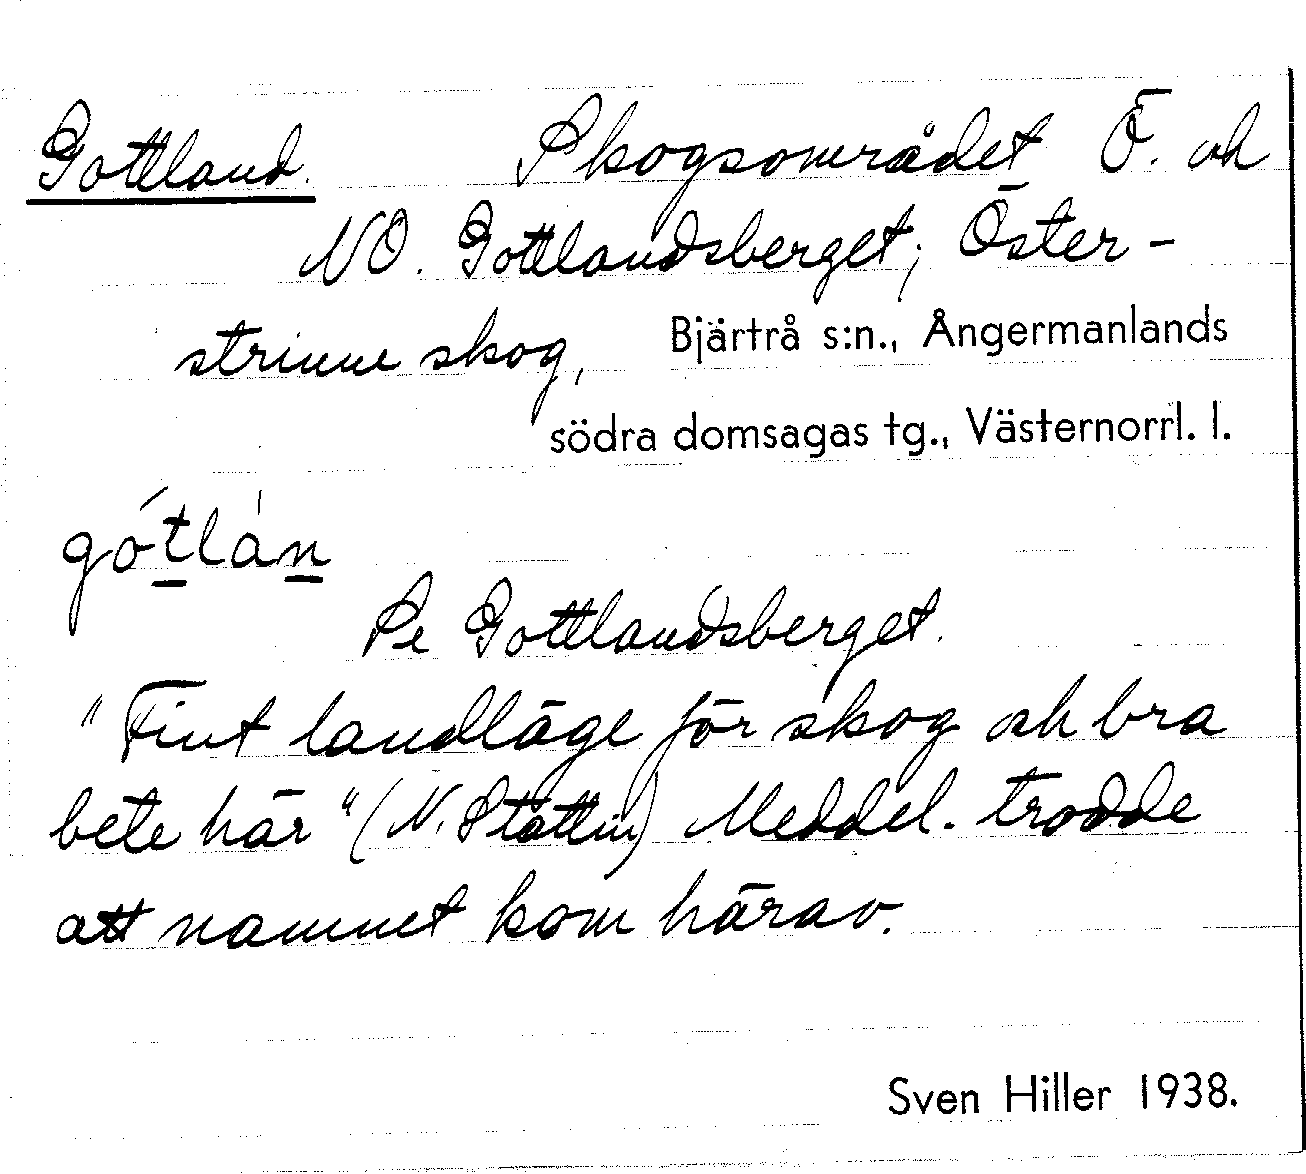 Gottland. Skogsområdet Ö. och
NO. Gottlandsberget; Öster-
strinne skog, Bjärtrå s:n., Ångermanlands
södra domsagas tg., Västernorrl. l.
gótlán
Se Gottlandsberget.
"Fint landläge för skog och bra
bete här" (N. Stattin) Meddel. trodde
att namnet kom härav.
Sven Hiller 1938.